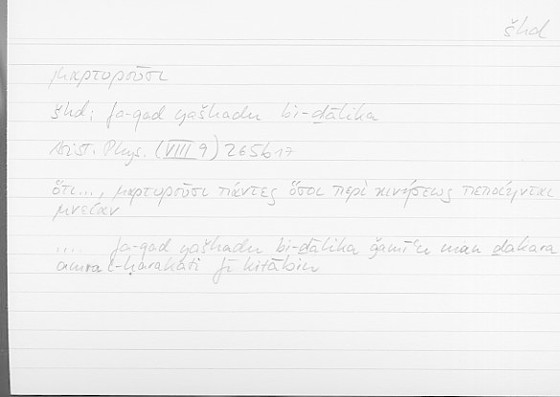 šhd
μαρτυροῦσι
šhd; fa-qad yašhadu bi-ḏālika
Arist. Phys. (VIII 9) 265b17
ὅτι..., μαρτυροῦσι πάντες ὅσοι περὶ κινήσεως πεποίηνται
μνείαν
.... fa-qad yašhadu bi-ḏālika ǧamīʿu man ḏakara
amra l-ḥarakati fī kitābin